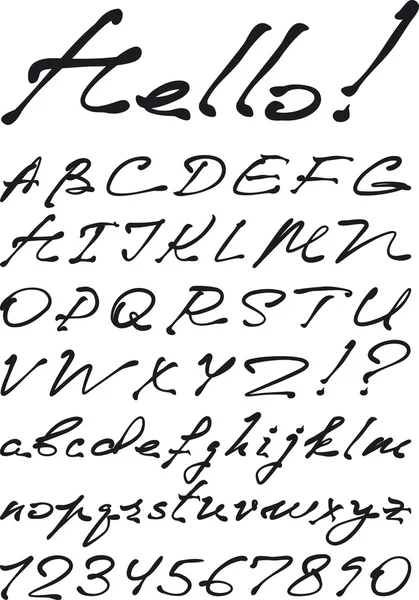 Hello!
A B C D E F G
H I J K L M N
O P Q R S T U
V W X Y Z ! ?
a b c d e f g h i j k l m
n o p q r s t u v w x y z
1 2 3 4 5 6 7 8 9 0